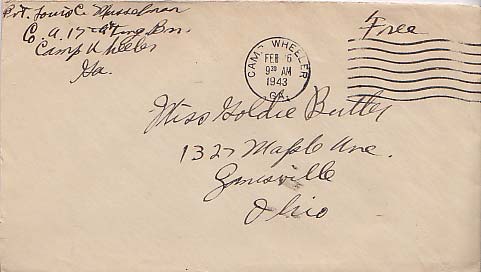 Pvt. Louis C. Musselman
Co. A. 17 Tng Bn.
Camp Wheeler
Ga.
CAMP WHEELER
FEB 6
9 30 AM
1943
GA.
Free
Miss Goldie Butler
1327 Maple Ave.
Zanesville
Ohio